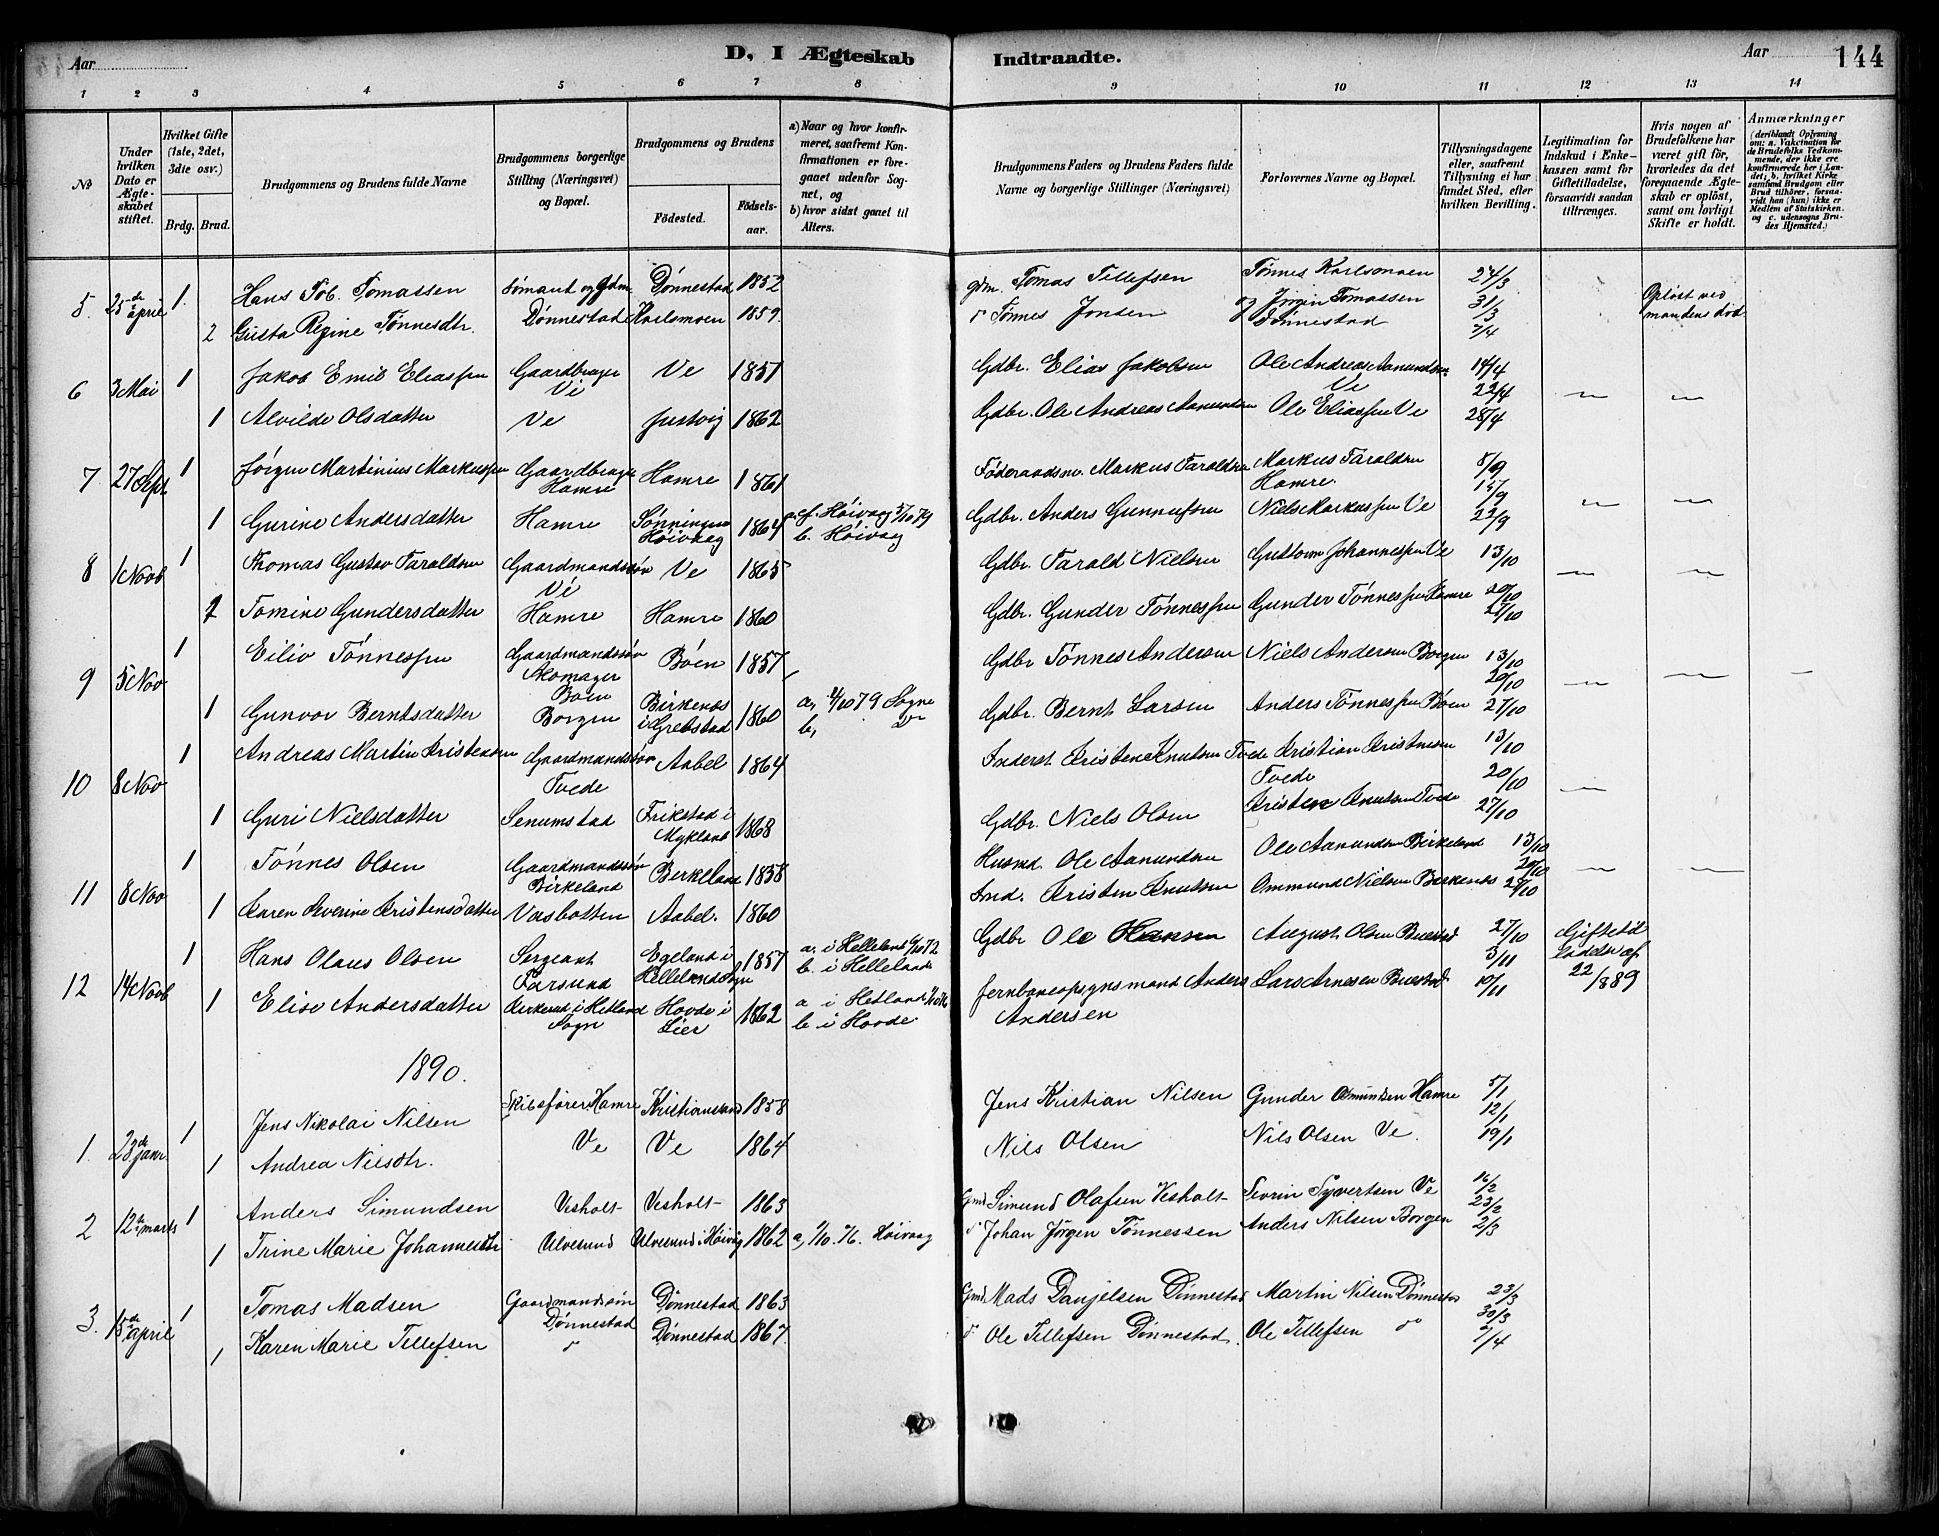 Aar
D, I Ægteskab
Indtraadte.
Aar
144
1 2 3 4 5 6 7 8 9 10 11 12 13 14
No
Under hvilken Dato er Ægteskabet stiftet.
Hvilket Gifte (1ste, 2det, 3die osv.)
Brdg. Brud.
Brudgommens og Brudens fulde Navne
Brudgommens borgerlige Stilling (Næringsvei) og Bopæl.
Brudgommens og Brudens
Fødested.
Fødselsaar.
a) Naar og hvor konfirmeret, saafremt Konfirmationen er foregaaet udenfor Sognet, og
b) hvor sidst gaaet til Alters.
Brudgommens Faders og Brudens Faders fulde Navne og borgerlige Stillinger (Næringsvei)
Forlovernes Navne og Bopæl.
Tillysningsdagene eller, saafremt Tillysning ei har fundet Sted, efter hvilken Bevilling.
Legitimation for Indskud i Enkekassen samt for Giftetilladelse, forsaavidt saadan tiltrænges.
Hvis nogen af Brudefolkene har været gift før, hvorledes da det foregaaende Ægteskab er opløst, samt om lovligt Skifte er holdt.
Anmærkninger (deriblandt Oplysning om: a. Vakcination for de Brudefolks Vedkommende, der ikke ere konfirmerede her i Landet; b. hvilket Kirkesamfund Brudgom eller Brud tilhører, forsaavidt han (hun) ikke er Medlem af Statskirken, og c. udensogns Brudes Hjemsted.)
5 25de april 1. Hans Tob. Tomassen Sømand og Gdm. Dønnestad 1852 gdm. Tomas Tellefsen Tønnes Karlsmoen 24/3
2 Gusta Regine Tønnesdtr. Dønnestad Karlsmoen 1859. d Tønnes Jensen og Jørgen Tomassen Dønnestad 31/3 7/4 Opløst ved mandens død
6 3 Mai 1 Jakob Emil Eliassen Gaardbruger Ve Ve 1851 Gdbr. Elias Jakobsen Ole Andreas Aanundsen Ve 14/4
1 Alvilde Olsdatter Ve Justvig 1862 Gdbr. Ole Andreas Aanundsen Ole Eliassen Ve 22/4 28/4 — —
7 27 Sept. 1 Jørgen Martinius Markussen Gaardbruger Hamre Hamre 1861 Føderaadsm. Markus Taraldsen Markus Taraldsen Hamre. 8/9 15/9
1 Gurine Andersdatter Hamre Sønningen Høivaag 1864 a. f. Høivaag 5/10 79 b. Høivaag Gdbr. Anders Gunnufsen Niels Markussen Ve 22/9 — —
8 1 Novb 1 Thomas Gustav Taraldsen Gaardmandssøn Ve Ve 1865 Gdbr. Tarald Nielsen Gustav Johannessen Ve 13/10 — —
Tomine Gundersdatter Hamre Hamre 1860 Gdbr. Gunder Tønnessen Gunder Tønnessen Hamre 20/10 27/10
9 5 Nov 1 Eiliv Tønnessen Gaardmandssøn Skomager Boen Bøen 1857 Gdbr Tønnes Andersen Niels Andersen Borgen 13/10 20/10
1 Gunvor Berntsdatter Borgen Birkenæs i Grebstad 1860 a, 4/10 79 Sogne b, Gdbr. Bernt Larsen Anders Tønnessen Bøen 27/10 — — —
10 8 Nov 1 Andreas Martin Kristensen Gaardmandssøn Tvede Aabel 1864 Inderst Kristen Knutsen Tvede Kristian Kristensen Tvede 13/10 20/10
1 Guri Nielsdatter Senumstad Frikstad i Mykland 1868 Gdbr. Niels Olsen Kristen Knutsen Tvede 27/10 —
11 8 Nov 1 Tønnes Olsen Gaardmandssøn Birkeland Berkeland 1838 Husmd. Ole Aanundsen Ole Aanundsen Birkeland 13/10 20/10
1 Karen Severine Kristensdatter Vasbotten Aabel. 1860 Ind. Kristen Knutsen Ommund Nielsen Birkenæs 27/10 — —
12 14 Novb 1 Hans Olaus Olsen Sergeant Farsund Egeland i Hellelands Sogn 1857 a. i Helleland 6/10 72 b. i Helleland Gdbr Ole Hansen August Olsen Buestad 27/10 3/11
1 Elise Andersdatter i Hetland Sogn Hovde i Lier 1862 a i Hetland b. i Hovde. Jernbaneopsynsmand Anders Andersen Lars Arnesen Buestad 10/11 22/1889
1890.
1. 23de janr. 1 Jens Nikolai Nilsen Skibsfører Hamre Kristiansand 1858 Jens Kristian Nilsen Gunder Osmundsen Hamre 5/1 12/1
1 Andrea Nilsdtr. Ve Ve 1864 Nils Olsen Nils Olsen Ve. 19/1
2 12te marts 1 Anders Simundsen Vesholt Vesholt 1863 Gmd. Simund Olafsen Vesholt Severin Syvertsen Ve 16/2 23/2
1 Trine Marie Johannesdtr Ulvesund Ulvesund i Høivag 1862 a, 1/10. 76. Høivaag d Johan Jørgen Tønnessen Anders Nilsen Borgen 2/3
3. 15de april 1 Tomas Madsen Gaardmandssøn Dønnestad Dønnestad 1863 Gmd Mads Danjelsen Dønnestad Martin Nilsen Dønnestad 23/3 30/3
1 Karen Marie Tellefsen d Dønnestad 1867. d Ole Tellefsen Dønnestad. Ole Tellefsen do 7/4